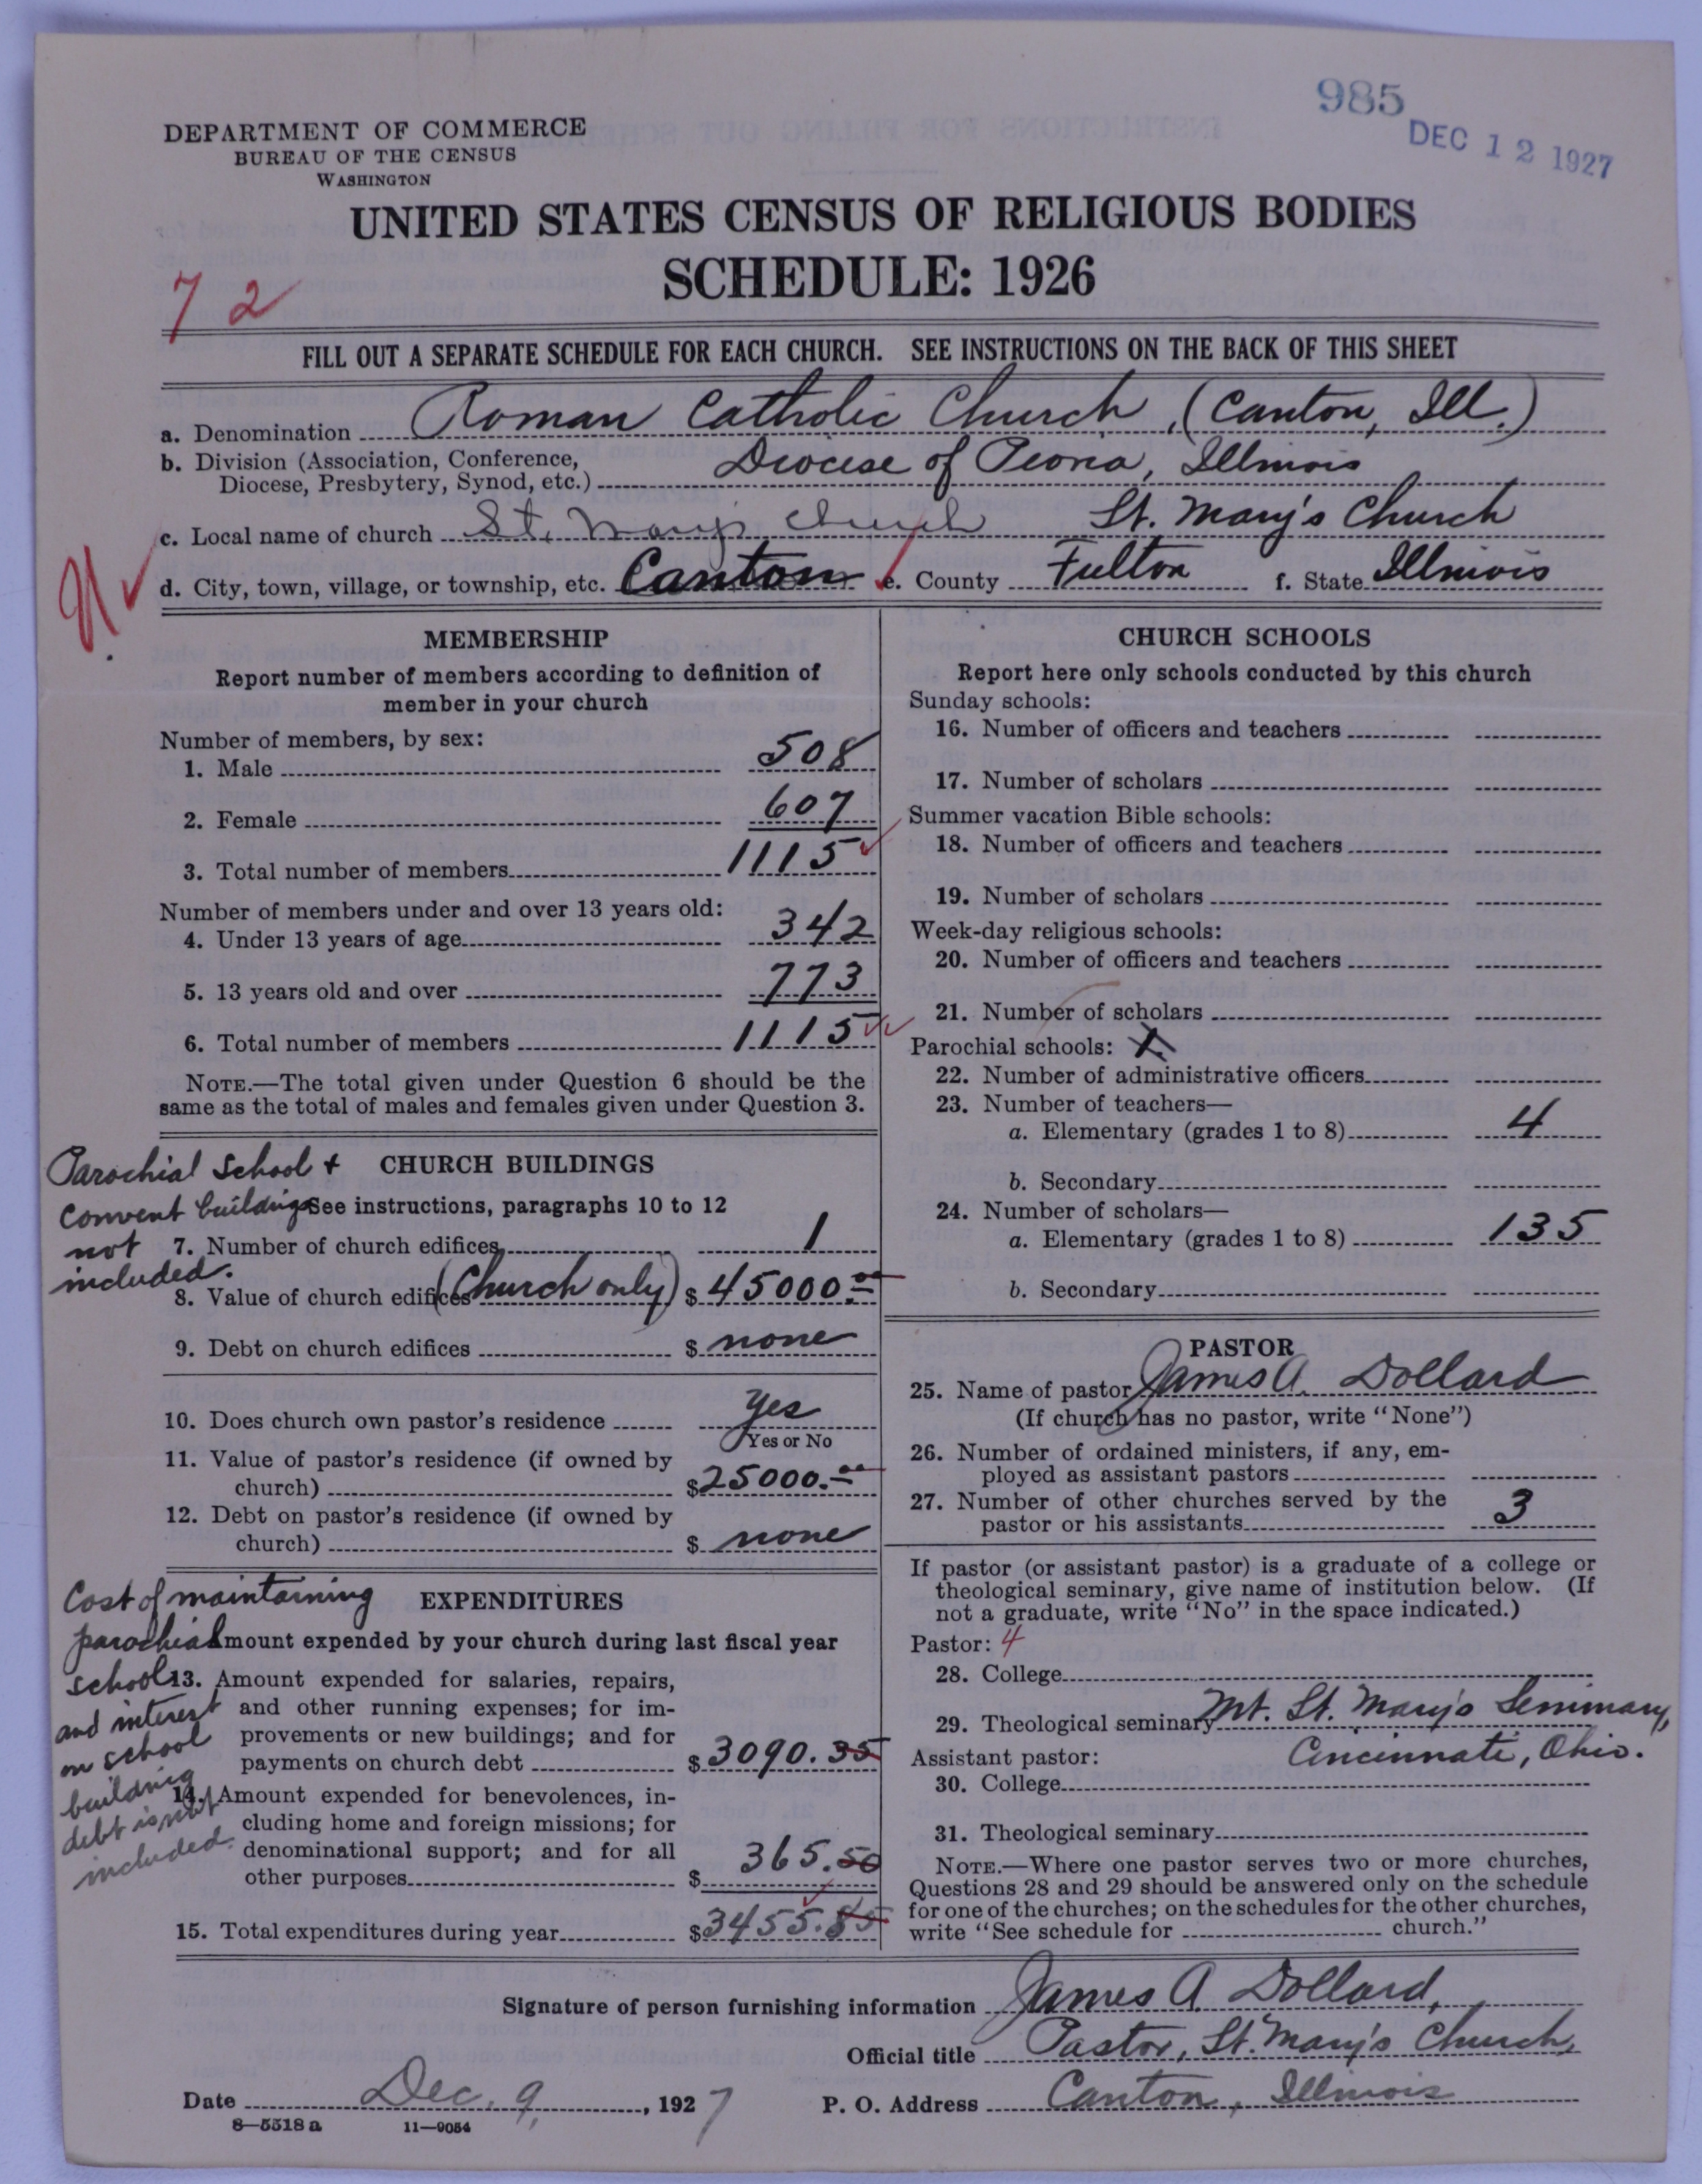 985
DEC 12 1927
DEPARTMENT OF COMMERCE
BUREAU OF THE CENSUS
WASHINGTON
UNITED STATES CENSUS OF RELIGIOUS BODIES
SCHEDULE: 1926
72
FILL OUT A SEPARATE SCHEDULE FOR EACH CHURCH. SEE INSTRUCTIONS ON THE BACK OF THIS SHEET
a. Denomination Roman Catholic Church, (Canton, Ill.)
b. Division (Association, Conference, Diocese, Presbytery, Synod, etc.) Diocese of Peoria, Illinois
c. Local name of church St. Mary's Church St. Mary's Church
d. City, town, village, or township, etc. Canton e. County Fulton f. State Illinois
MEMBERSHIP
Report number of members according to definition of
member in your church
Number of members, by sex:
1. Male 508
2. Female 607
3. Total number of members 1115
Number of members under and over 13 years old:
4. Under 13 years of age 342
5. 13 years old and over 773
6. Total number of members 1115
NOTE.—The total given under Question 6 should be the
same as the total of males and females given under Question 3.
Parochial School + convent buildings not included.
CHURCH BUILDINGS
See instructions, paragraphs 10 to 12
7. Number of church edifices 1
8. Value of church edifices (Church only) $ 45000.00
9. Debt on church edifices $ none
10. Does church own pastor's residence Yes
Yes or No
11. Value of pastor's residence (if owned by
church) $ 25000.00
12. Debt on pastor's residence (if owned by
church) $ none
Cost of maintaining parochial school and interest on school building debt is not included.
EXPENDITURES
Amount expended by your church during last fiscal year
13. Amount expended for salaries, repairs,
and other running expenses; for im-
provements or new buildings; and for
payments on church debt $ 3090.35
14. Amount expended for benevolences, in-
cluding home and foreign missions; for
denominational support; and for all
other purposes $ 365.50
15. Total expenditures during year $ 3455.85
CHURCH SCHOOLS
Report here only schools conducted by this church
Sunday schools:
16. Number of officers and teachers
17. Number of scholars
Summer vacation Bible schools:
18. Number of officers and teachers
19. Number of scholars
Week-day religious schools:
20. Number of officers and teachers
21. Number of scholars
Parochial schools: X
22. Number of administrative officers
23. Number of teachers—
a. Elementary (grades 1 to 8) 4
b. Secondary
24. Number of scholars—
a. Elementary (grades 1 to 8) 135
b. Secondary
PASTOR
25. Name of pastor James A. Dollard
(If church has no pastor, write "None")
26. Number of ordained ministers, if any, em-
ployed as assistant pastors
27. Number of other churches served by the
pastor or his assistants 3
If pastor (or assistant pastor) is a graduate of a college or
theological seminary, give name of institution below. (If
not a graduate, write "No" in the space indicated.)
Pastor: 4
28. College
29. Theological seminary Mt. St. Mary's Seminary,
Cincinnati, Ohio.
Assistant pastor:
30. College
31. Theological seminary
NOTE.—Where one pastor serves two or more churches,
Questions 28 and 29 should be answered only on the schedule
for one of the churches; on the schedules for the other churches,
write "See schedule for church."
Signature of person furnishing information James A. Dollard,
Official title Pastor, St. Mary's Church,
Date Dec. 9, 1927 P. O. Address Canton, Illinois
8—5518 a 11—9054